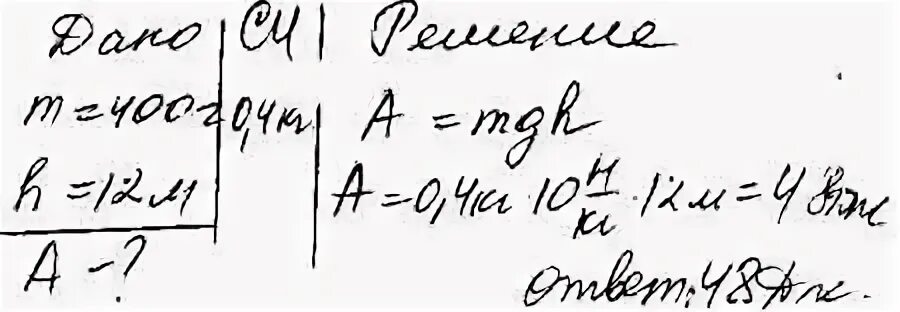 Дано СИ Решение
m = 400г 0,4кг A = mgh
h = 12 м A = 0,4кг 10 Н/кг · 12 м = 48 Дж
A - ?
ответ: 48 Дж.